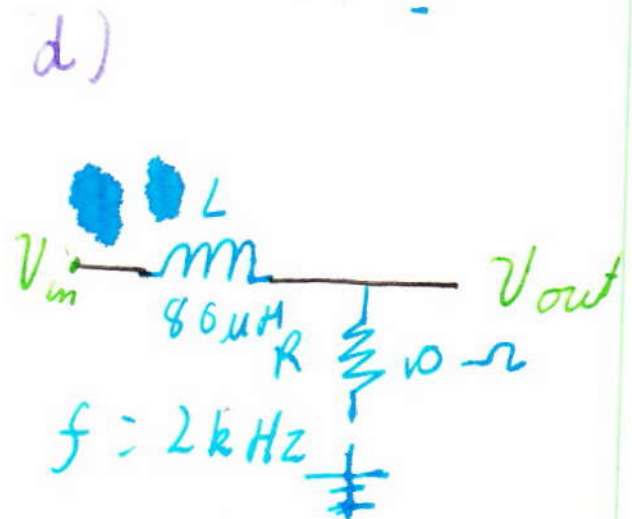 d)
L
Vin
Vout
86 μH
R
10 Ω
f = 2 kHz